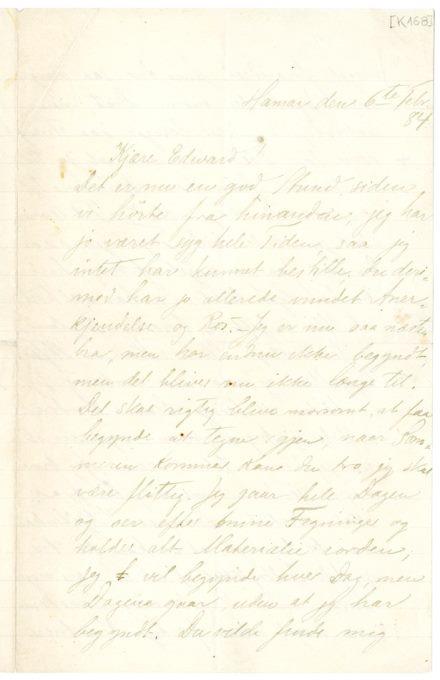 [K168]
Hamar den 6te Febr.
84
Kjære Edvard!
Det er nu en god Stund, siden
vi hörte fra hinanden, jeg har
jo været syg hele Tiden, saa jeg
intet har kunnet bestille. Du deri-
mod har jo allerede vundet Aner-
kjendelse og Ros. - Jeg er nu saa næsten
bra, men har endnu ikke begyndt,
men det bliver nu ikke længe til.
Det skal rigtig blive morsomt, at faa
begynde at tegne igjen, naar Som-
meren kommer kan du tro, jeg skal
være flittig. Jeg gaar hele Dagen
og ser efter mine Tegninger og
holder alt Materialie iorden,
jeg vil begynde hver Dag, men
Dagene gaar, uden at jeg har
begyndt. Du vilde finde mig